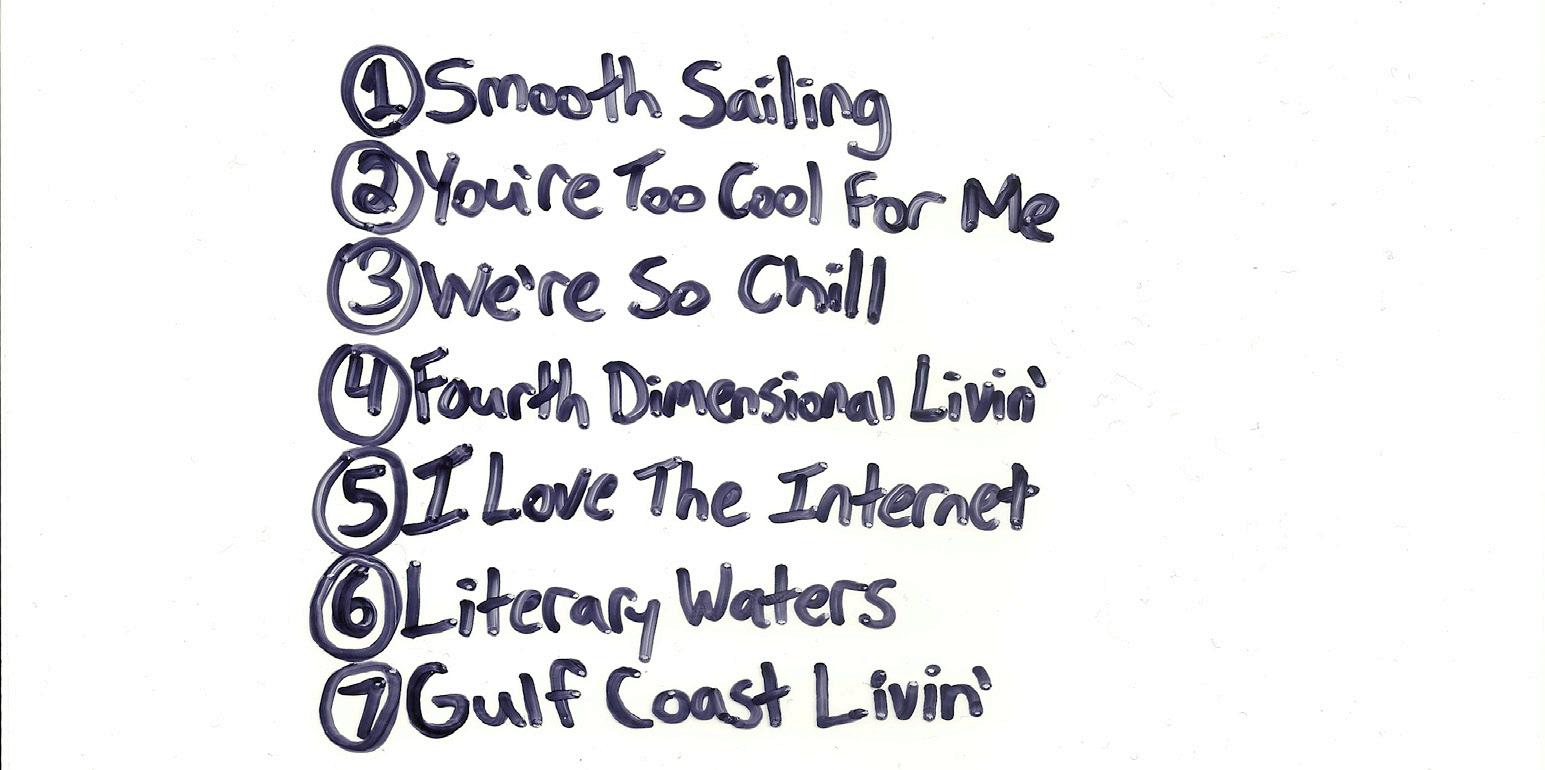 ① Smooth Sailing
② You're Too Cool For Me
③ We're So Chill
④ Fourth Dimensional Livin'
⑤ I Love The Internet
⑥ Literary Waters
⑦ Gulf Coast Livin'